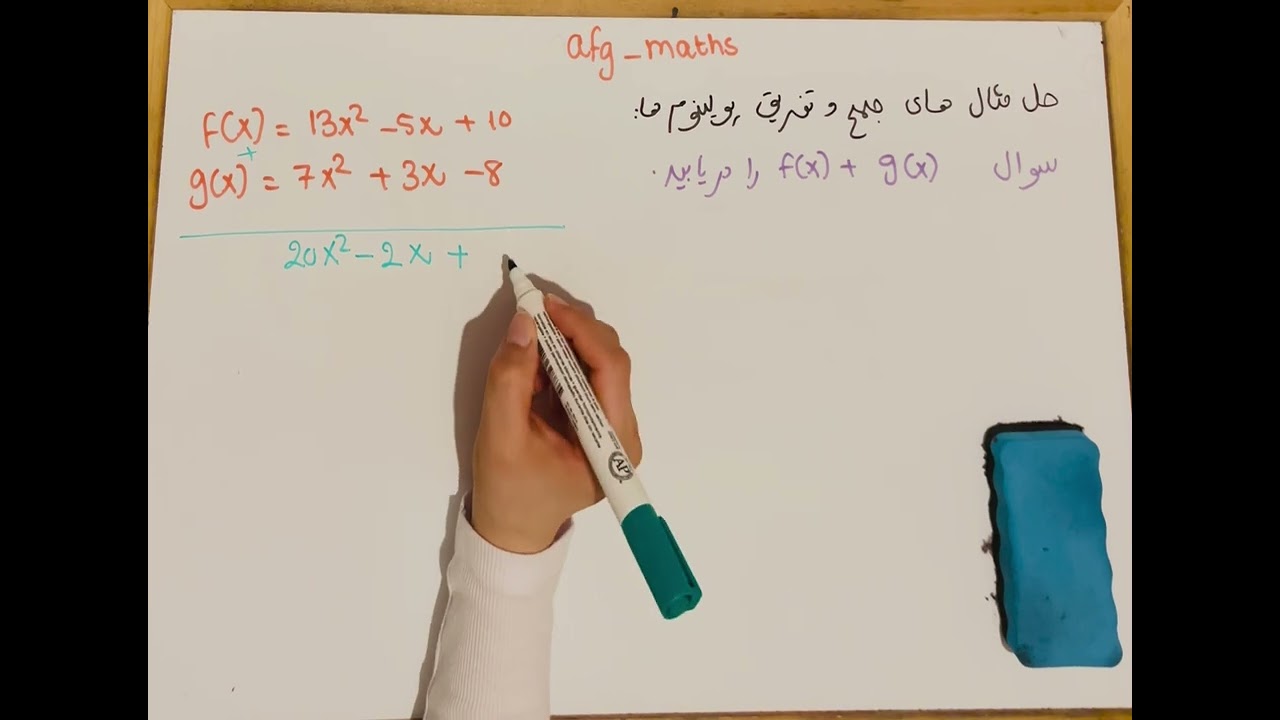 afg_maths
حل مثال های جمع و تفریق پولینوم ها:
سوال f(x) + g(x) را دریابید.
f(x) = 13x² - 5x + 10
+
g(x) = 7x² + 3x - 8
20x² - 2x +
AP